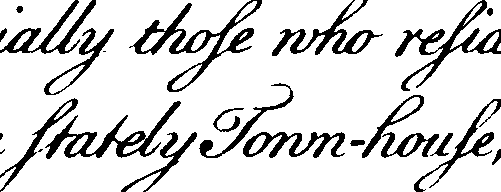 ially thoſe who reſid
ſtately Town-houſe,